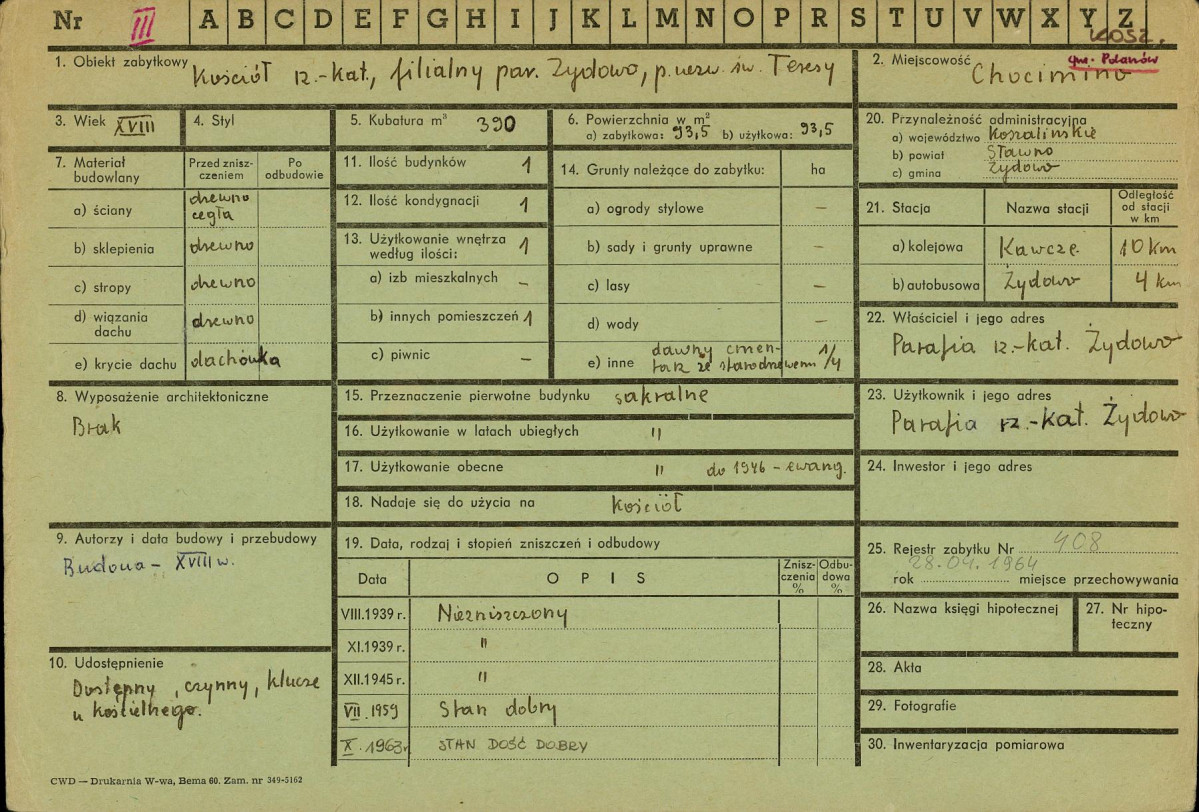 Nr III A B C D E F G H I J K L M N O P R S T U V W X Y Z
KOSZ.
1. Obiekt zabytkowy Kościół rz.-kat., filialny par. Żydowo, p. wezw. św. Teresy
2. Miejscowość gm. Polanów
Chocimino
3. Wiek XVIII
4. Styl
5. Kubatura m³ 390
6. Powierzchnia w m²
a) zabytkowa: 93,5 b) użytkowa: 93,5
20. Przynależność administracyjna
a) województwo Koszalińskie
b) powiat Sławno
c) gmina Żydowo
7. Materiał budowlany
Przed zniszczeniem
Po odbudowie
a) ściany drewno cegła
b) sklepienia drewno
c) stropy drewno
d) wiązania dachu drewno
e) krycie dachu dachówka
11. Ilość budynków 1
12. Ilość kondygnacji 1
13. Użytkowanie wnętrza według ilości: 1
a) izb mieszkalnych –
b) innych pomieszczeń 1
c) piwnic –
14. Grunty należące do zabytku: ha
a) ogrody stylowe –
b) sady i grunty uprawne –
c) lasy –
d) wody –
e) inne dawny cmentarz ze starodrzewem 1/4
21. Stacja Nazwa stacji Odległość od stacji w km
a) kolejowa Kawcze 10 km
b) autobusowa Żydowo 4 km
22. Właściciel i jego adres
Parafia rz.-kat. Żydowo
8. Wyposażenie architektoniczne
Brak
15. Przeznaczenie pierwotne budynku sakralne
16. Użytkowanie w latach ubiegłych "
17. Użytkowanie obecne " do 1946 – ewang.
18. Nadaje się do użycia na kościół
23. Użytkownik i jego adres
Parafia rz.-kat. Żydowo
24. Inwestor i jego adres
9. Autorzy i data budowy i przebudowy
Budowa – XVIII w.
19. Data, rodzaj i stopień zniszczeń i odbudowy
Data OPIS Zniszczenia % Odbudowa %
VIII.1939 r. Niezniszczony
XI.1939 r. "
XII.1945 r. "
VII.1959 Stan dobry
X.1963 r. STAN DOŚĆ DOBRY
25. Rejestr zabytku Nr 408
28.04.1964
rok miejsce przechowywania
26. Nazwa księgi hipotecznej
27. Nr hipoteczny
10. Udostępnienie
Dostępny, czynny, klucze
u kościelnego.
28. Akta
29. Fotografie
30. Inwentaryzacja pomiarowa
CWD — Drukarnia W-wa, Bema 60. Zam. nr 349-5162